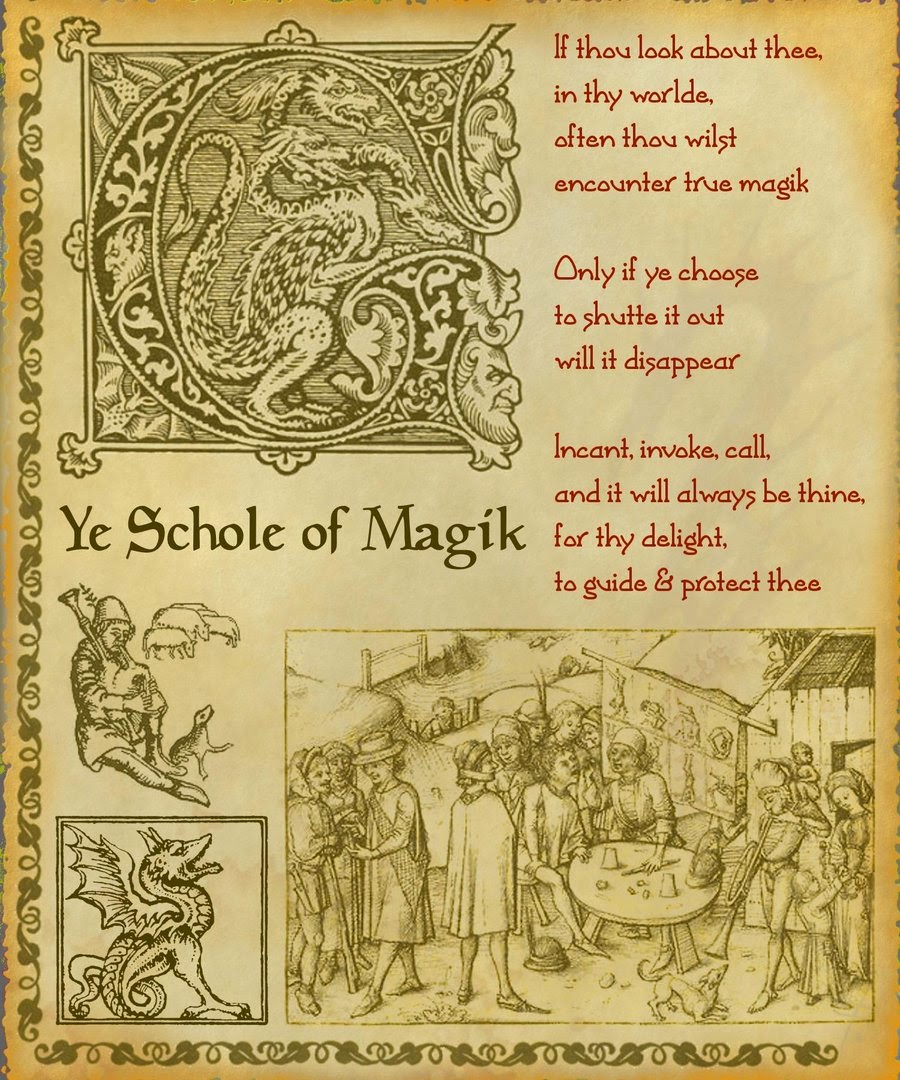 If thou look about thee,
in thy worlde,
often thou wilst
encounter true magik
Only if ye choose
to shutte it out
will it disappear
Incant, invoke, call,
and it will always be thine,
for thy delight,
to guide & protect thee
Ye Schole of Magik